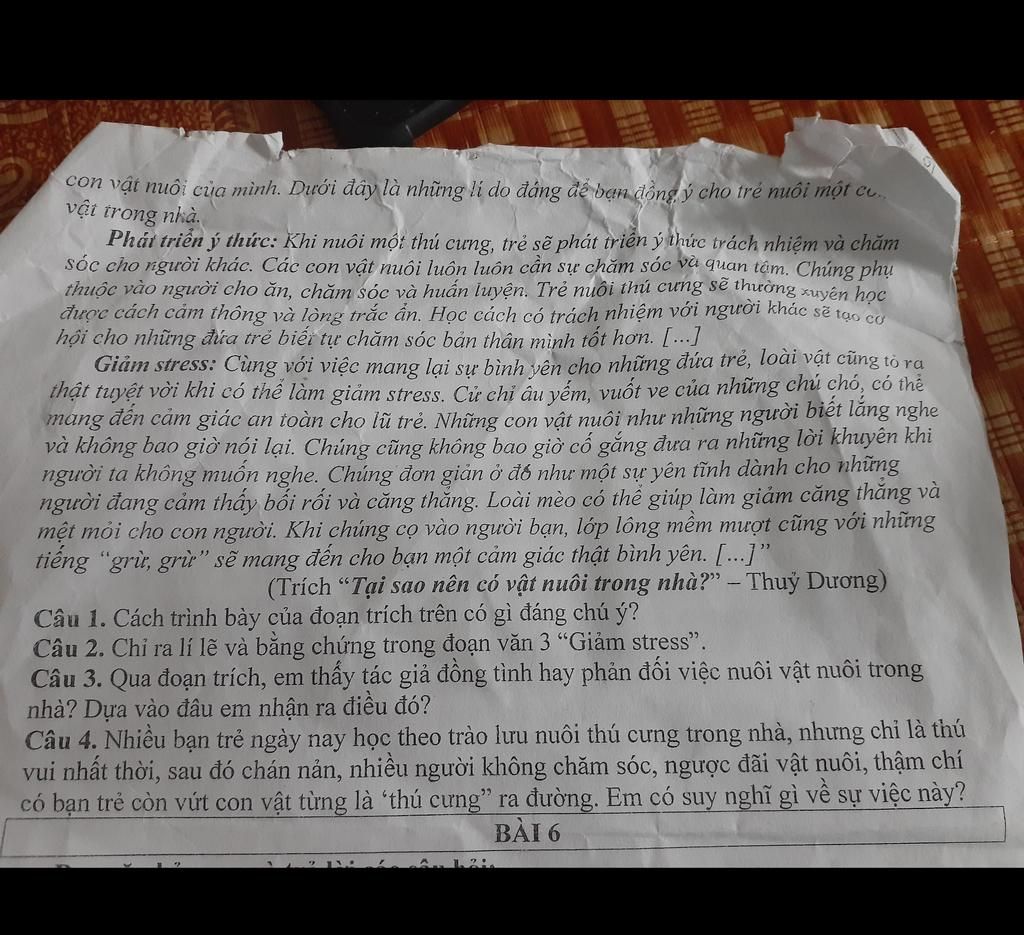 con vật nuôi của mình. Dưới đây là những lí do đáng để bạn đồng ý cho trẻ nuôi một
vật trong nhà.
Phát triển ý thức: Khi nuôi một thú cưng, trẻ sẽ phát triển ý thức trách nhiệm và chăm
sóc cho người khác. Các con vật nuôi luôn luôn cần sự chăm sóc và quan tâm. Chúng phụ
thuộc vào người cho ăn, chăm sóc và huấn luyện. Trẻ nuôi thú cưng sẽ thường xuyên học
được cách cảm thông và lòng trắc ẩn. Học cách có trách nhiệm với người khác sẽ tạo cơ
hội cho những đứa trẻ biết tự chăm sóc bản thân mình tốt hơn. [...]
Giảm stress: Cùng với việc mang lại sự bình yên cho những đứa trẻ, loài vật cũng tỏ ra
thật tuyệt vời khi có thể làm giảm stress. Cử chỉ âu yếm, vuốt ve của những chú chó, có thể
mang đến cảm giác an toàn cho lũ trẻ. Những con vật nuôi như những người biết lắng nghe
và không bao giờ nói lại. Chúng cũng không bao giờ cố gắng đưa ra những lời khuyên khi
người ta không muốn nghe. Chúng đơn giản ở đó như một sự yên tĩnh dành cho những
người đang cảm thấy bối rối và căng thẳng. Loài mèo có thể giúp làm giảm căng thẳng và
mệt mỏi cho con người. Khi chúng cọ vào người bạn, lớp lông mềm mượt cũng với những
tiếng “grừ, grừ” sẽ mang đến cho bạn một cảm giác thật bình yên. [...]”
(Trích “Tại sao nên có vật nuôi trong nhà?” – Thuỷ Dương)
Câu 1. Cách trình bày của đoạn trích trên có gì đáng chú ý?
Câu 2. Chỉ ra lí lẽ và bằng chứng trong đoạn văn 3 “Giảm stress”.
Câu 3. Qua đoạn trích, em thấy tác giả đồng tình hay phản đối việc nuôi vật nuôi trong
nhà? Dựa vào đâu em nhận ra điều đó?
Câu 4. Nhiều bạn trẻ ngày nay học theo trào lưu nuôi thú cưng trong nhà, nhưng chỉ là thú
vui nhất thời, sau đó chán nản, nhiều người không chăm sóc, ngược đãi vật nuôi, thậm chí
có bạn trẻ còn vứt con vật từng là ‘thú cưng” ra đường. Em có suy nghĩ gì về sự việc này?
BÀI 6